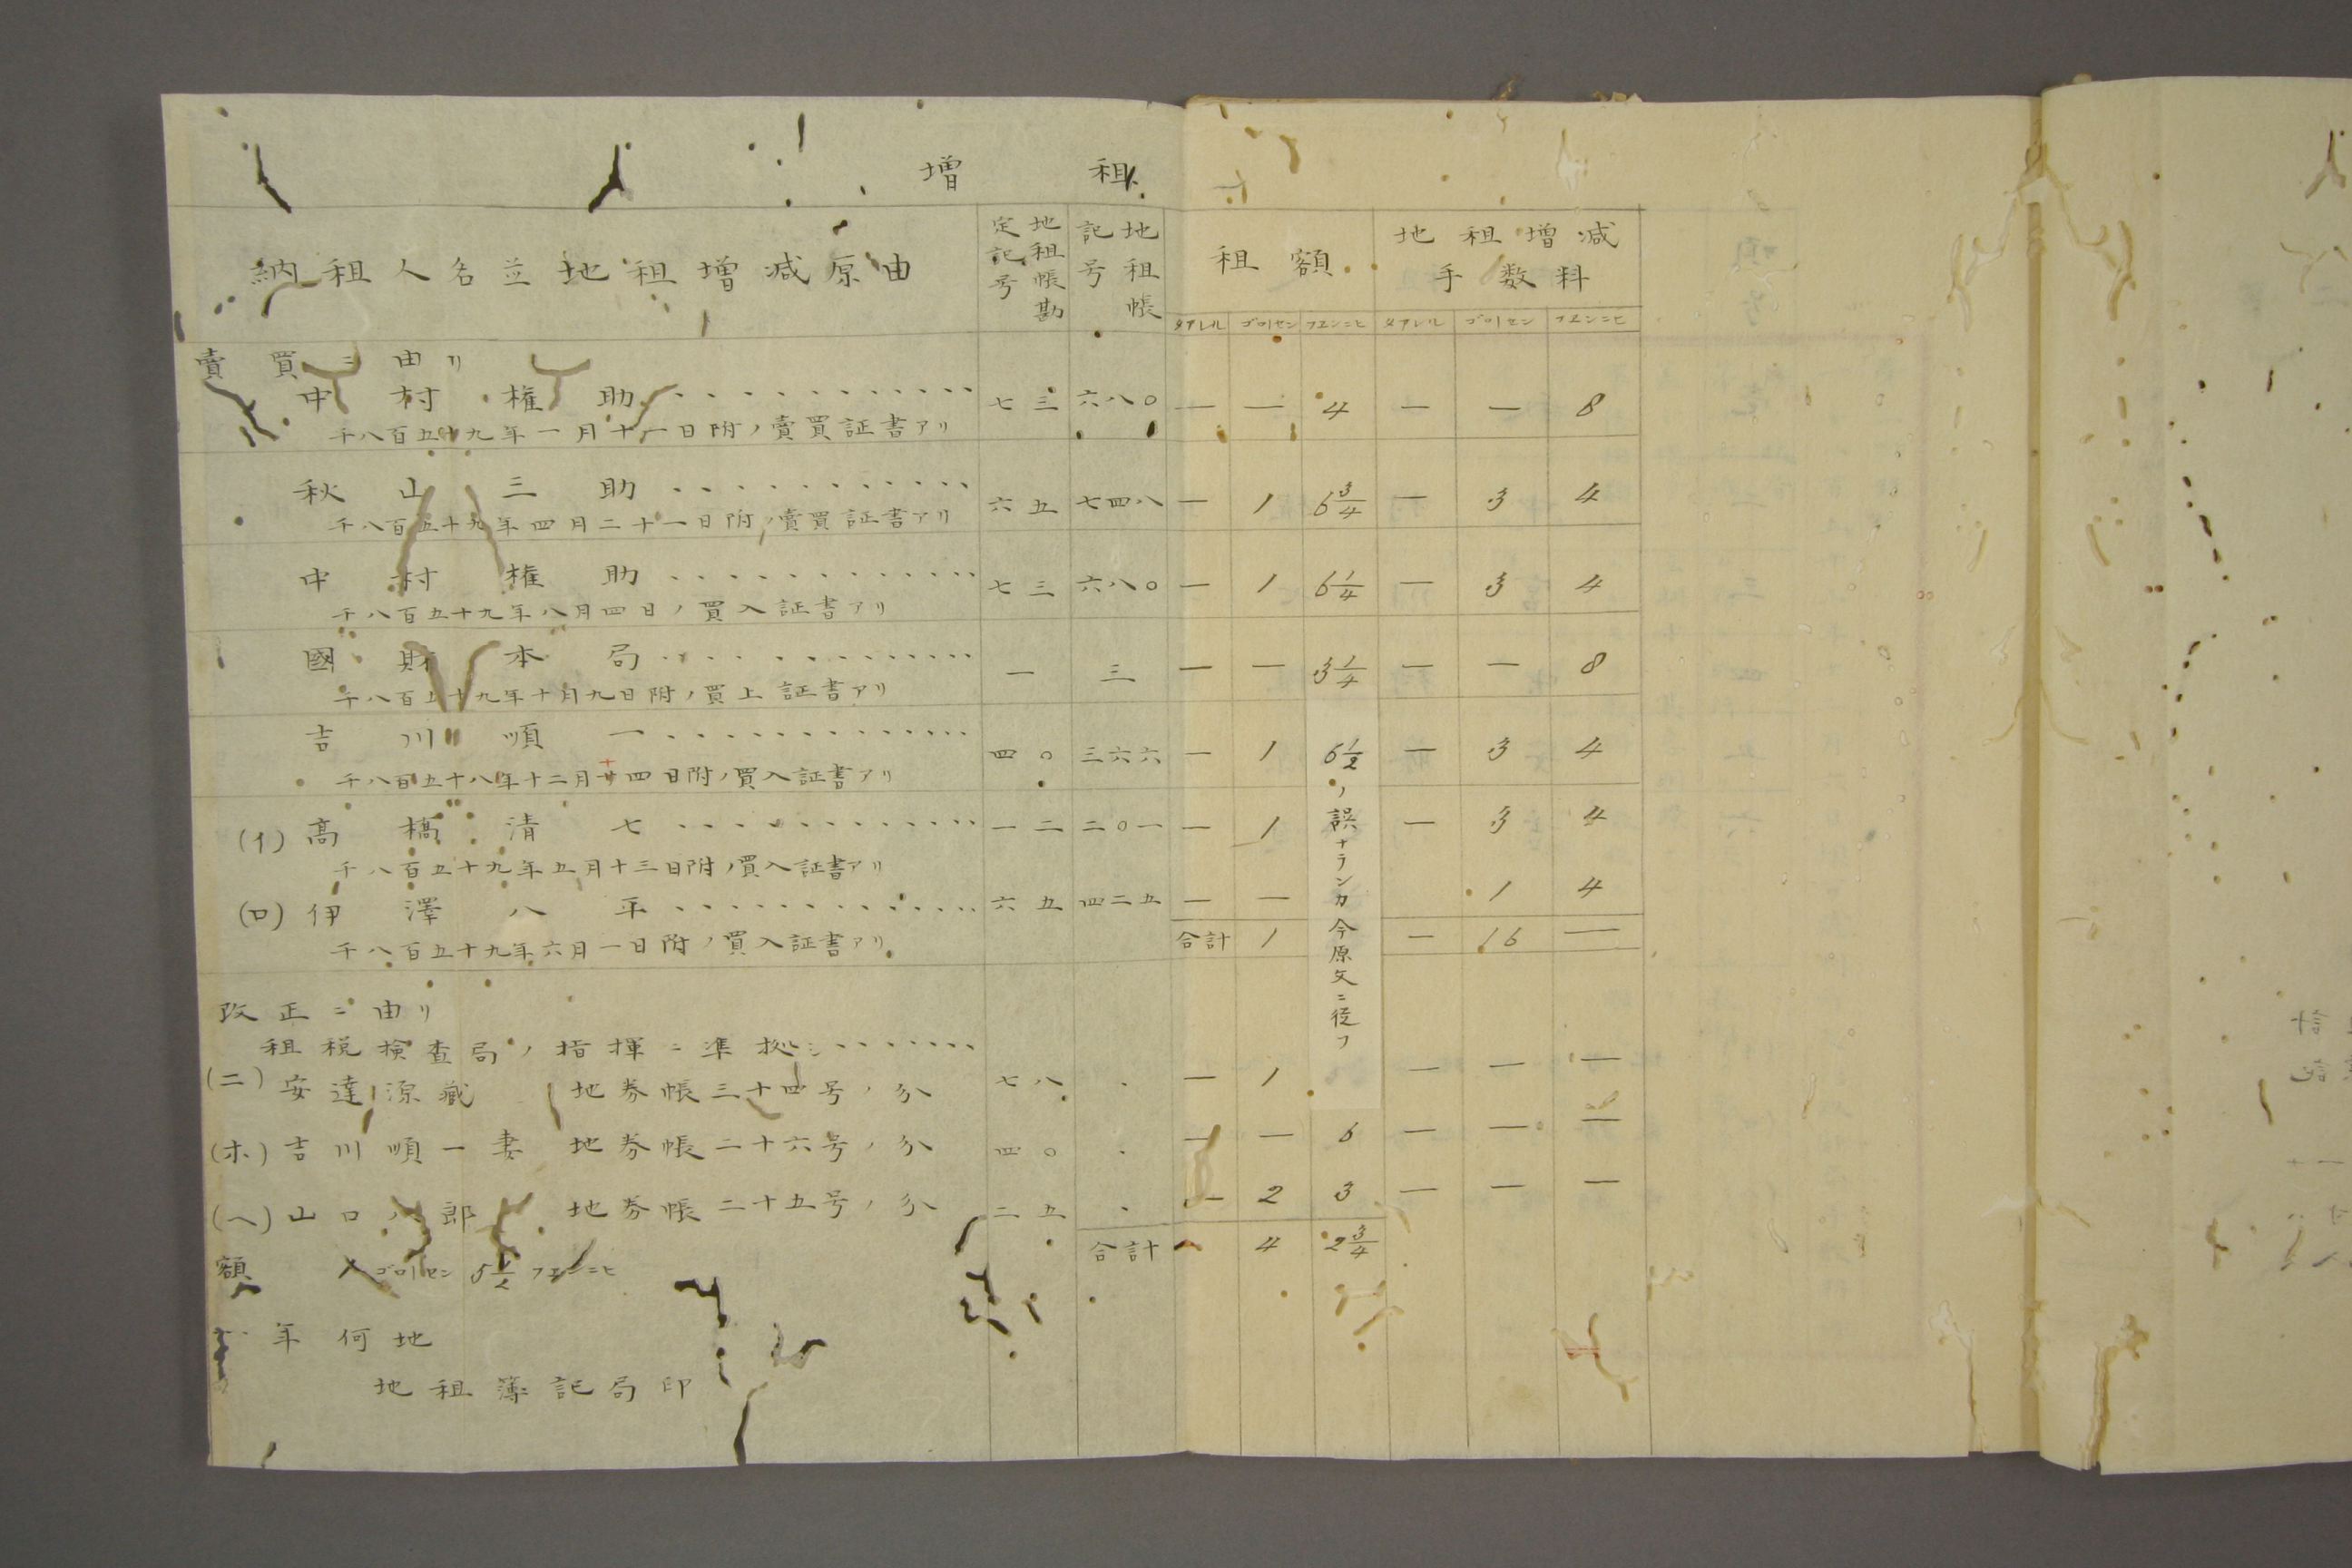 増租
納租人名並地租増減原由 地租帳勘定記号 地租帳記号 租額 地租増減手数料
タアレル ゴロイセン フエンニヒ タアレル ゴロイセン フエンニヒ
賣買ニ由リ
中村権助 七三 六八〇 — — 4 — — 8
千八百五十九年一月十一日附ノ賣買証書アリ
秋山三助 六五 七四八 — 1 6 3/4 — 3 4
千八百五十九年四月二十一日附ノ賣買証書アリ
中村権助 七三 六八〇 — 1 6 1/4 — 3 4
千八百五十九年八月四日ノ買入証書アリ
國財本局 一 三 — — 3 1/4 — — 8
千八百五十九年十月九日附ノ買上証書アリ
吉川順一 四〇 三六六 — 1 6 1/2 — 3 4
千八百五十八年十二月十四日附ノ買入証書アリ
(イ) 高橋清七 一二 二〇一 — 1 — 3 4
千八百五十九年五月十三日附ノ買入証書アリ
(ロ) 伊澤八平 六五 四二五 — — 1 4
合計 1 — 16 —
千八百五十九年六月一日附ノ買入証書アリ
ノ誤ナランカ今原文ニ従フ
改正ニ由リ
租税検査局ノ指揮ニ準拠シ
(ニ) 安達源藏 地券帳三十四号ノ分 七八 — 1 — — —
(ホ) 吉川順一妻 地券帳二十六号ノ分 四〇 — — 6 — — —
(ヘ) 山口八郎 地券帳二十五号ノ分 二五 — 2 3 — — —
合計 4 2 3/4
額 ゴロイセン 5 1/2 フエンニヒ
年何地
地租簿記局印